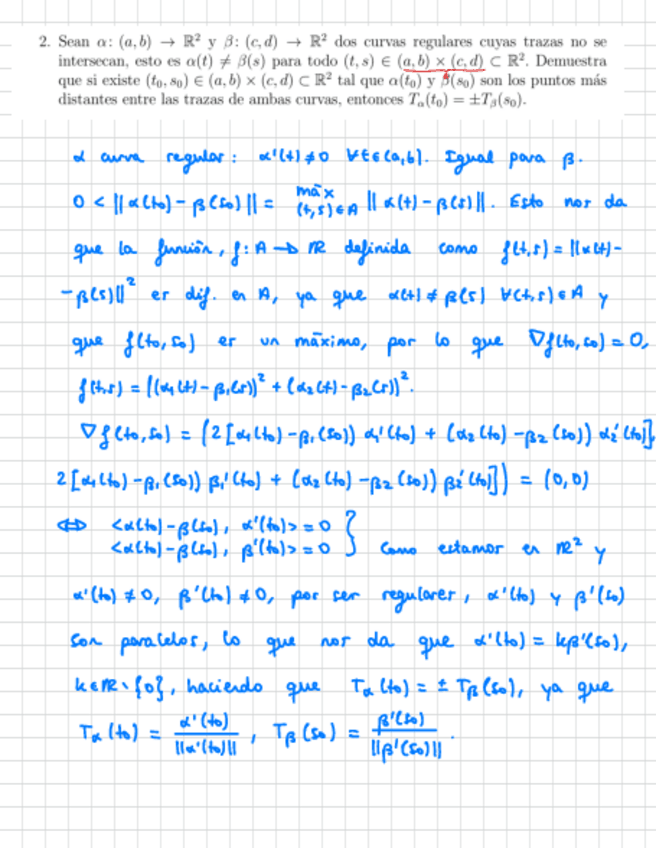 2. Sean α: (a, b) → ℝ² y β: (c, d) → ℝ² dos curvas regulares cuyas trazas no se
intersecan, esto es α(t) ≠ β(s) para todo (t, s) ∈ (a, b) × (c, d) ⊂ ℝ². Demuestra
que si existe (t₀, s₀) ∈ (a, b) × (c, d) ⊂ ℝ² tal que α(t₀) y β(s₀) son los puntos más
distantes entre las trazas de ambas curvas, entonces Tα(t₀) = ±Tβ(s₀).
α curva regular: α'(t) ≠ 0 ∀t∈(a,b). Igual para β.
0 < ||α(t₀) - β(s₀)|| = máx (t,s)∈A ||α(t) - β(s)||. Esto nos da
que la función, f: A → ℝ definida como f(t,s) = ||α(t)-
-β(s)||² es dif. en A, ya que α(t) ≠ β(s) ∀(t,s)∈A y
que f(t₀,s₀) es un máximo, por lo que ∇f(t₀,s₀) = 0,
f(t,s) = ((α₁(t) - β₁(s))² + (α₂(t) - β₂(s))².
∇f(t₀,s₀) = (2[α₁(t₀) - β₁(s₀)) α₁'(t₀) + (α₂(t₀) - β₂(s₀)) α₂'(t₀)],
2[α₁(t₀) - β₁(s₀)) β₁'(t₀) + (α₂(t₀) - β₂(s₀)) β₂'(t₀)]) = (0,0)
⟺ <α(t₀) - β(s₀), α'(t₀)> = 0 }
<α(t₀) - β(s₀), β'(t₀)> = 0 } Como estamos en ℝ² y
α'(t₀) ≠ 0, β'(t₀) ≠ 0, por ser regulares, α'(t₀) y β'(s₀)
son paralelos, lo que nos da que α'(t₀) = kβ'(s₀),
k∈ℝ\{0}, haciendo que Tα(t₀) = ± Tβ(s₀), ya que
Tα(t₀) = α'(t₀) / ||α'(t₀)||, Tβ(s₀) = β'(s₀) / ||β'(s₀)||.